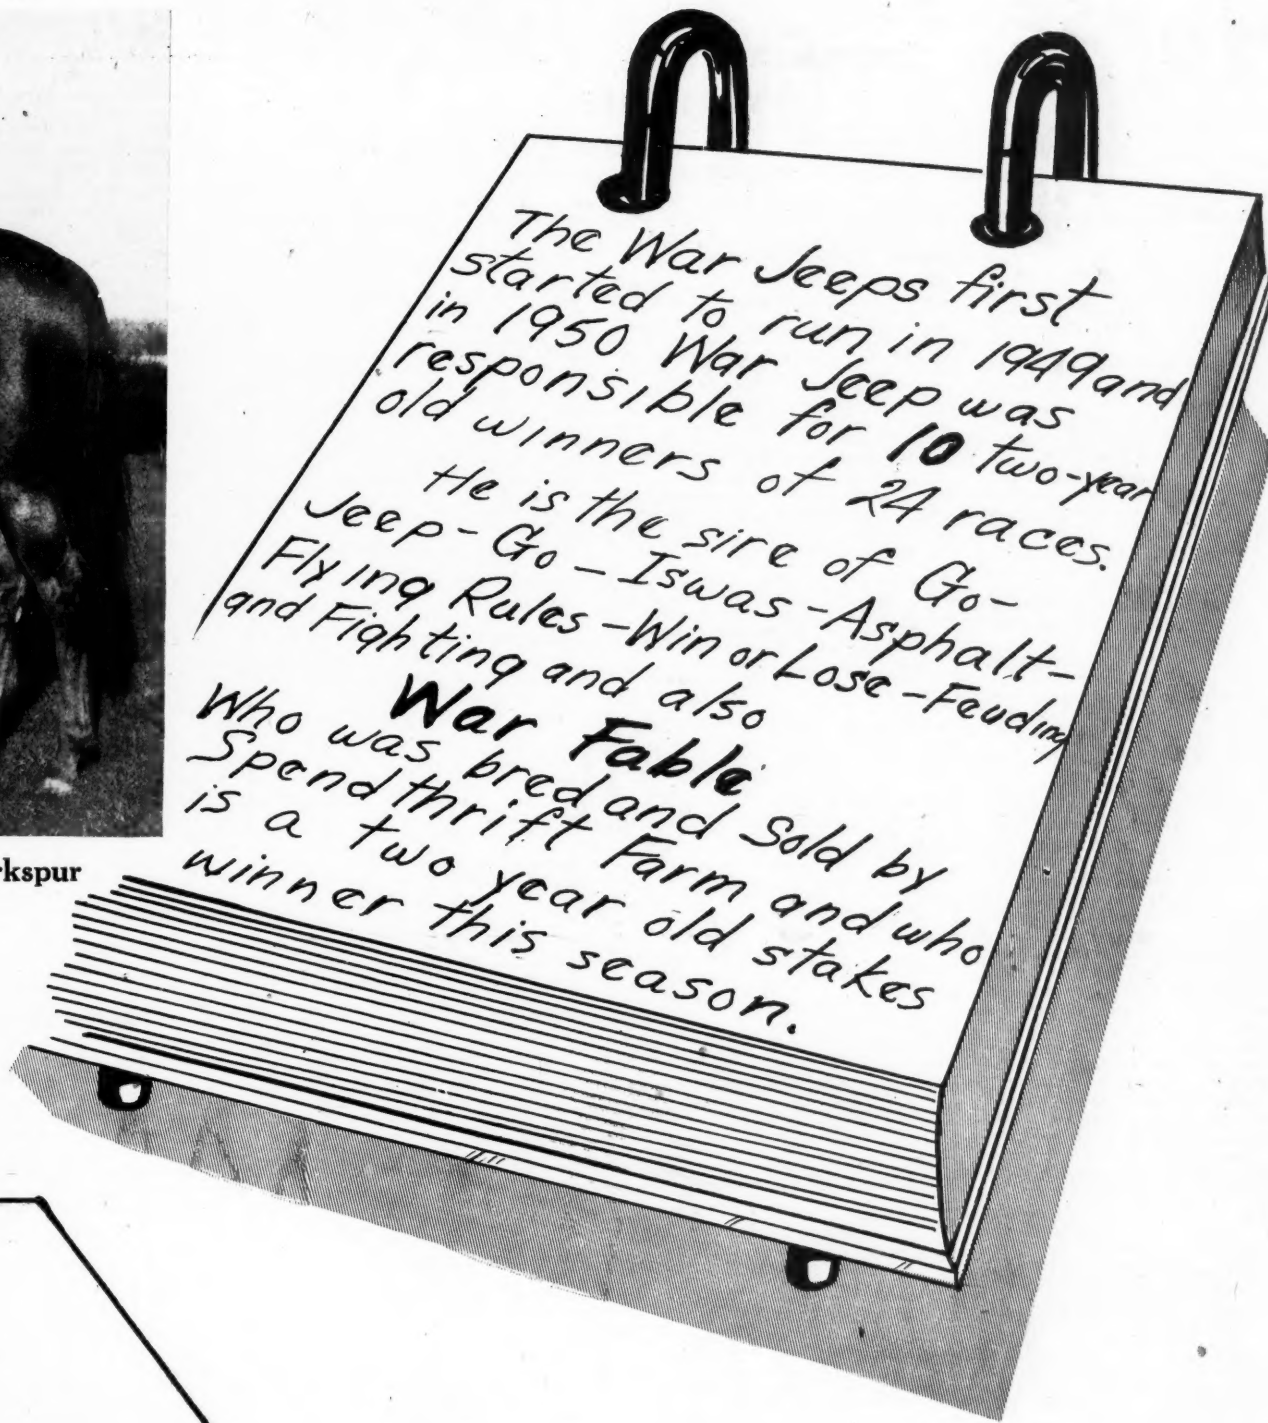 The War Jeeps first
started to run in 1949 and
in 1950 War Jeep was
responsible for 10 two-year
old winners of 24 races.
He is the sire of Go-
Jeep-Go-Iswas-Asphalt-
Flying Rules-Win or Lose-Feuding
and Fighting and also
War Fable
Who was bred and sold by
Spendthrift Farm and who
is a two year old stakes
winner this season.
rkspur